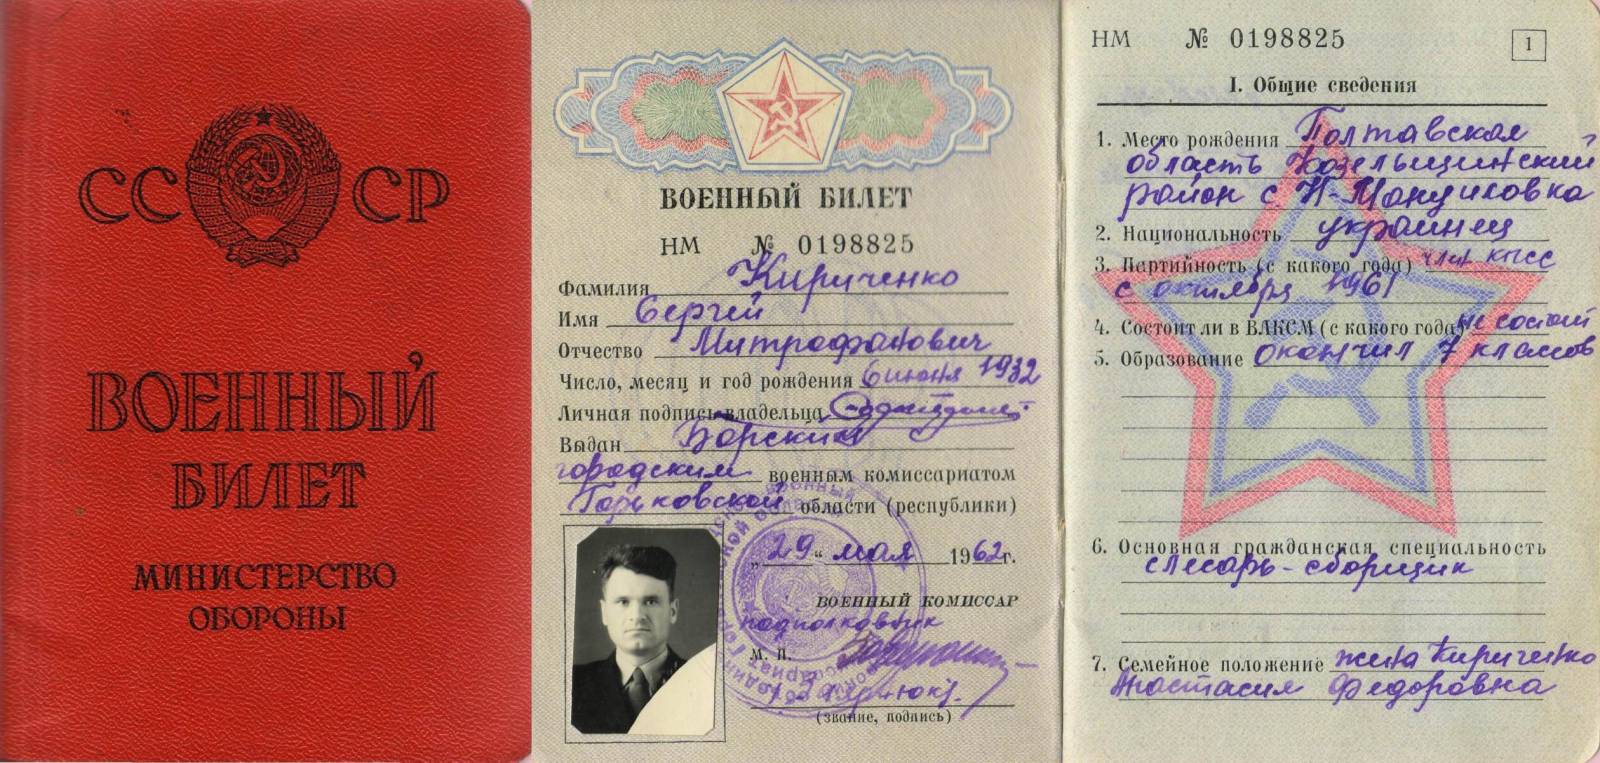 СССР
ВОЕННЫЙ
БИЛЕТ
МИНИСТЕРСТВО
ОБОРОНЫ
ВОЕННЫЙ БИЛЕТ
НМ № 0198825
Фамилия Кириченко
Имя Сергей
Отчество Митрофанович
Число, месяц и год рождения 6 июня 1932
Личная подпись владельца
Выдан Борским
городским военным комиссариатом
Горьковской области (республики)
„29“ мая 1962 г.
ВОЕННЫЙ КОМИССАР
подполковник
М. П.
(звание, подпись)
НМ № 0198825
1
I. Общие сведения
1. Место рождения Полтавская
область Козельщинский
район с
2. Национальность украинец
3. Партийность (с какого года) член КПСС
с октября 1961
4. Состоит ли в ВЛКСМ (с какого года) не состоит
5. Образование окончил 7 классов
6. Основная гражданская специальность
слесарь-сборщик
7. Семейное положение жена Кириченко
Анастасия Федоровна